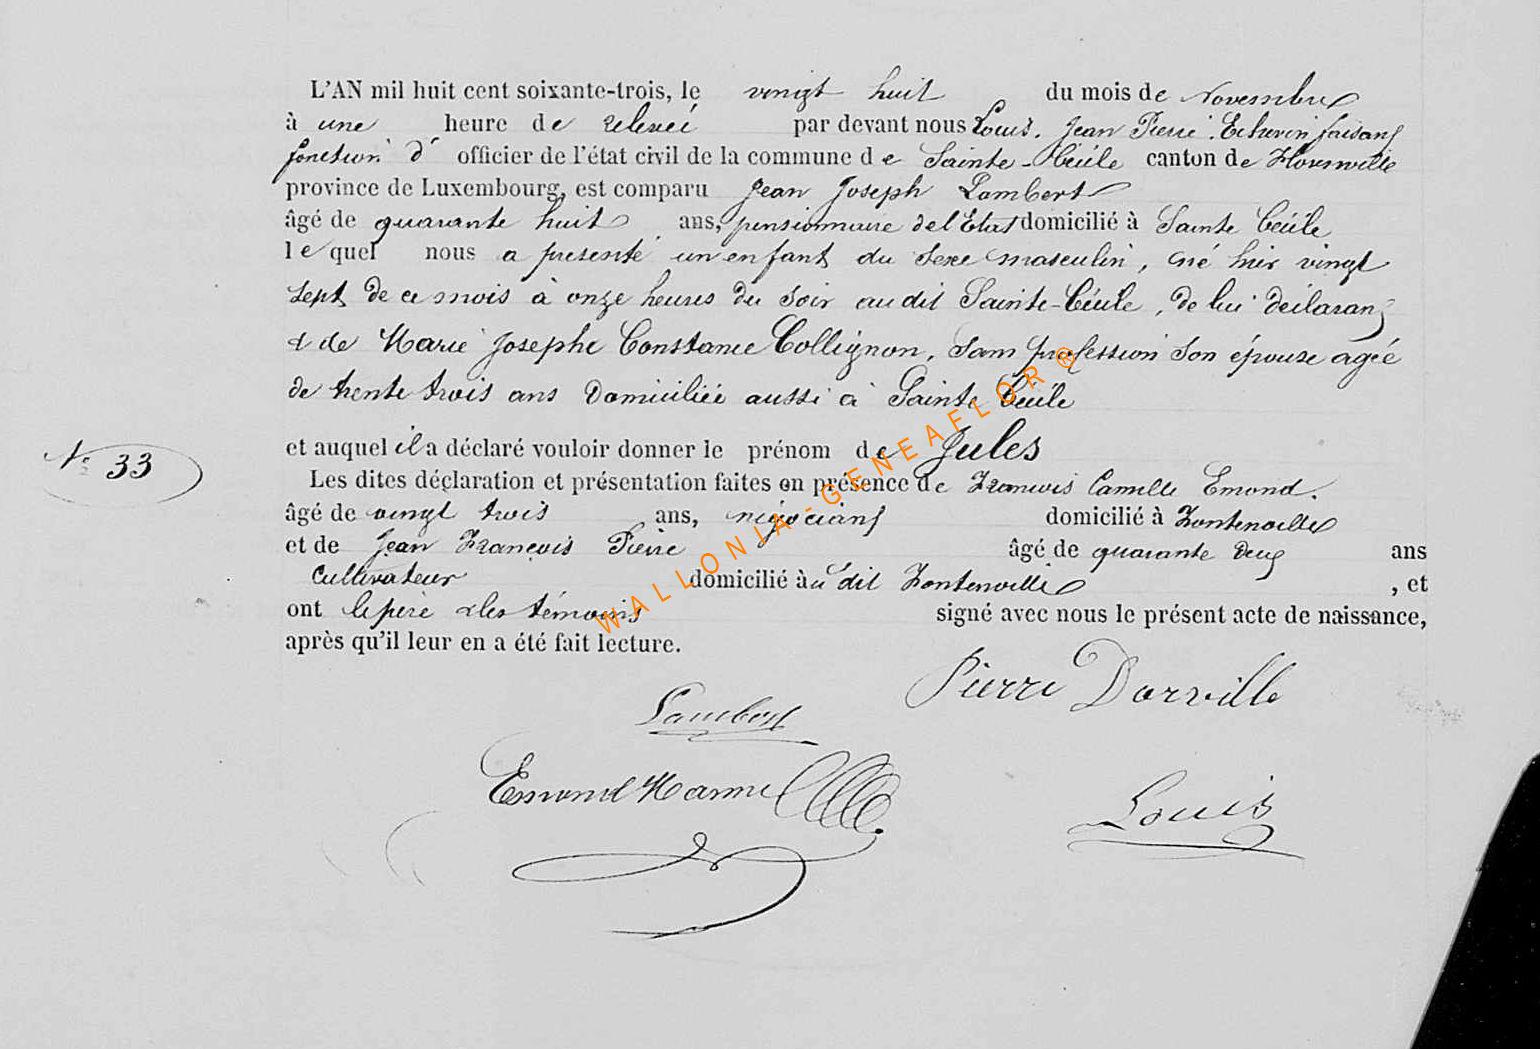 L'AN mil huit cent soixante-trois, le vingt huit du mois de Novembre
à une heure de relevée par devant nous Louis, Jean Pierre, Echevin faisant
fonction d' officier de l'état civil de la commune de Sainte-Cécile canton de Florenville
province de Luxembourg, est comparu Jean Joseph Lambert
âgé de quarante huit ans, pensionnaire de l'Etat domicilié à Sainte Cécile
lequel nous a presenté un enfant du sexe masculin, né hier vingt
sept de ce mois à onze heures du soir au dit Sainte-Cécile, de lui déclarant
& de Marie Josephe Constance Collignon, sans profession son épouse agée
de trente trois ans domiciliée aussi à Sainte Cécile
et auquel il a déclaré vouloir donner le prénom de Jules
N° 33
Les dites déclaration et présentation faites en présence de François Camille Emond,
âgé de vingt trois ans, négociant domicilié à Fontenoille
et de Jean François Pierre âgé de quarante deux ans
cultivateur domicilié àu dit Fontenoille, et
ont le père & les témoins signé avec nous le présent acte de naissance,
après qu'il leur en a été fait lecture.
Pierre Dorville
Lambert
Emond
Louis
WALLONIA-GENEAFLOR®